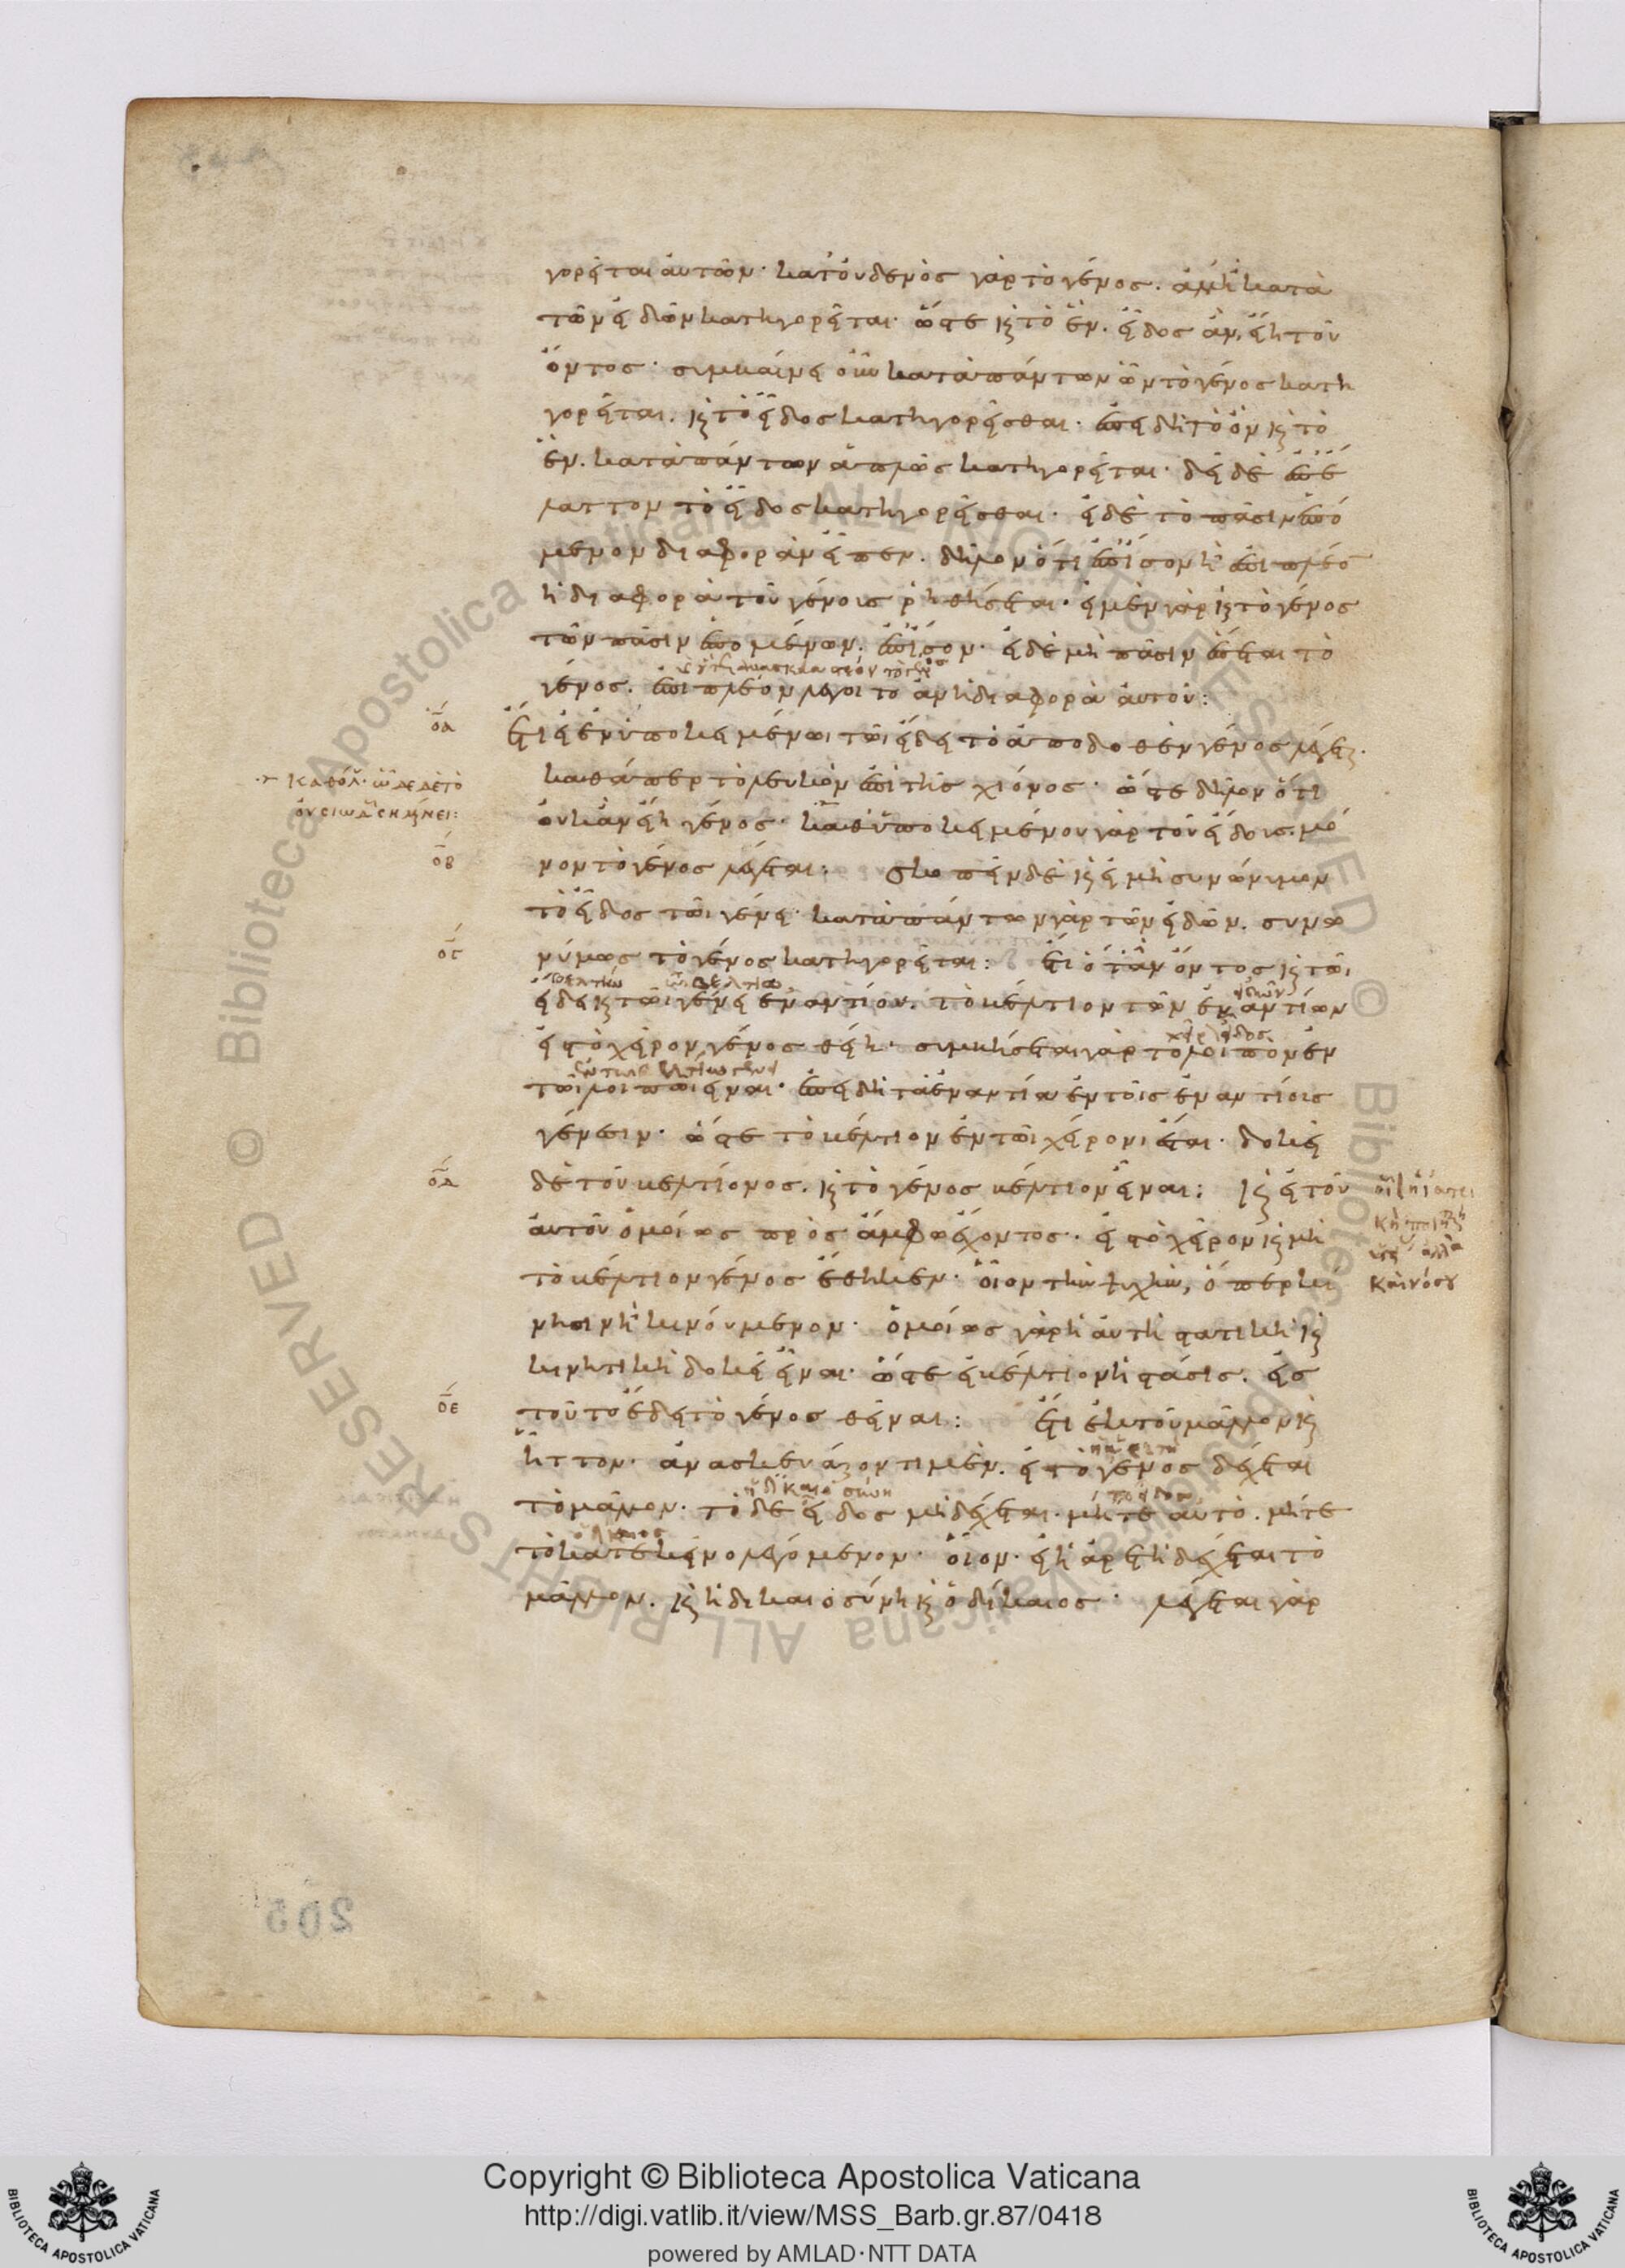 γορεῖται αὐτῶν· κατ' οὐδενὸς γὰρ τὸ γένος. ἀλλ' ἢ κατὰ
τῶν εἰδῶν κατηγορεῖται· ὥστε καὶ τὸ ἕν. εἶδος ἂν εἴη τοῦ
ὄντος· συμβαίνει οὖν κατὰ πάντων ὧν τὸ γένος κατη
γορεῖται. καὶ τὸ εἶδος κατηγορεῖσθαι· ἐπειδὴ τὸ ὂν καὶ τὸ
ἕν. κατὰ πάντων ἁπλῶς κατηγορεῖται· δεῖ δὲ ἐπ' ἔ
λαττον τὸ εἶδος κατηγορεῖσθαι· εἰ δὲ τὸ πᾶσιν ἑπό
μενον διαφορὰν εἶπεν. δῆλον ὅτι ἐπ' ἴσον ἢ ἐπὶ πλέον
ἡ διαφορὰ τοῦ γένους ῥηθήσεται· εἰ μὲν γὰρ καὶ τὸ γένος
τῶν πᾶσιν ἑπομένων. ἐπ' ἴσον· εἰ δὲ μὴ πᾶσιν ἕπεται τὸ
γένος. ἐπὶ πλέον λέγοιτο ἂν ἡ διαφορὰ αὐτοῦ:
οα
Ἔτι εἰ ἐν ὑποκειμένωι τῶι εἴδει τὸ ἀποδοθὲν γένος λέγεται.
καθάπερ τὸ λευκὸν ἐπὶ τῆς χιόνος· ὥστε δῆλον ὅτι
οὐκ ἂν εἴη γένος· καθ' ὑποκειμένου γὰρ τοῦ εἴδους. μό
οβ
νον τὸ γένος λέγεται: Σκοπεῖν δὲ καὶ εἰ μὴ συνώνυμον
τὸ εἶδος τῶι γένει· κατὰ πάντων γὰρ τῶν εἰδῶν. συνω
νύμως τὸ γένος κατηγορεῖται: Ἔτι ὅταν ὄντος καὶ τῶι
εἴδει καὶ τῶι γένει ἐναντίου. τὸ βέλτιον τῶν ἐναντίων
εἰς τὸ χεῖρον γένος θείη· συμβήσεται γὰρ τὸ λοιπὸν ἐν
τῶι λοιπῶι εἶναι· ἐπειδὴ τὰ ἐναντία ἐν τοῖς ἐναντίοις
γένεσιν· ὥστε τὸ βέλτιον ἐν τῶι χείρονι ἔσται· δοκεῖ
οδ
δὲ τοῦ βελτίονος. καὶ τὸ γένος βέλτιον εἶναι: Καὶ εἰ τοῦ
αὐτοῦ ὁμοίως πρὸς ἄμφω ἔχοντος. εἰς τὸ χεῖρον καὶ μὴ
τὸ βέλτιον γένος ἔθηκεν· οἷον τὴν ψυχὴν, ὅπερ κί
νησιν ἢ κινούμενον· ὁμοίως γὰρ ἡ αὐτὴ στατικὴ καὶ
κινητικὴ δοκεῖ εἶναι· ὥστε εἰ βέλτιον ἡ στάσις. εἰς
οε
τοῦτο ἔδει τὸ γένος θεῖναι: Ἔτι ἐκ τοῦ μᾶλλον καὶ
ἧττον· ἀνασκευάζοντι μὲν. εἰ τὸ γένος δέχεται
τὸ μᾶλλον. τὸ δὲ εἶδος μὴ δέχεται. μήτε αὐτὸ. μήτε
τὸ κατ' ἐκεῖνο λεγόμενον· οἷον. εἰ ἡ ἀρετὴ δέχεται τὸ
μᾶλλον. καὶ ἡ δικαιοσύνη καὶ ὁ δίκαιος· λέγεται γὰρ
205
Copyright © Biblioteca Apostolica Vaticana
http://digi.vatlib.it/view/MSS_Barb.gr.87/0418
powered by AMLAD·NTT DATA